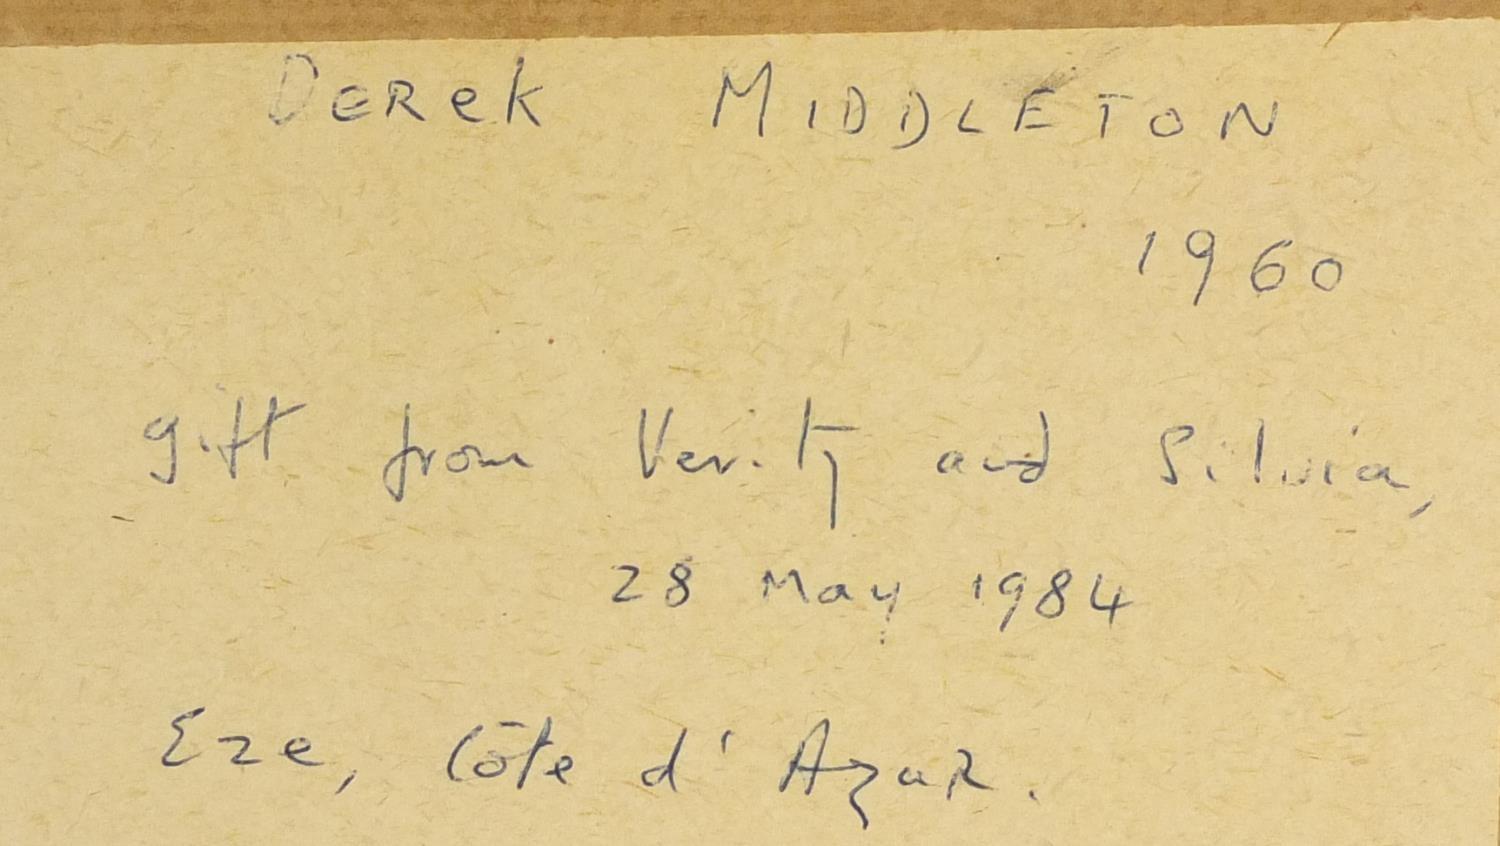 Derek Middleton
1960
gift from Verity and Silvia,
28 May 1984
Eze, Côte d'Azur.